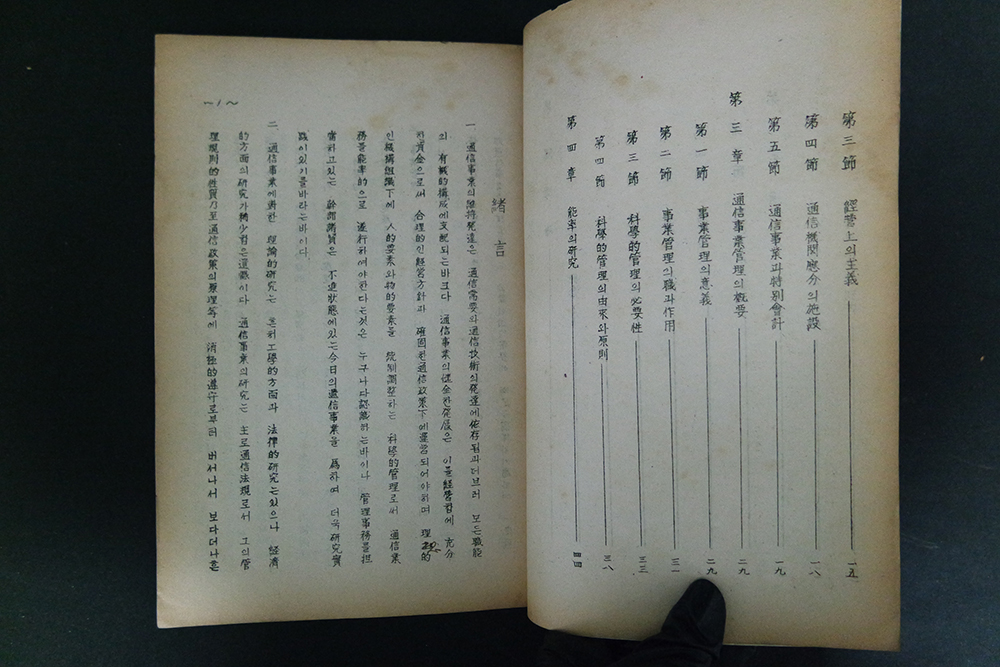 第三節 經營上의主義 一五
第四節 通信機関應分의施設 一八
第五節 通信事業과特別會計 一九
第三章 通信事業管理의概要 二九
第一節 事業管理의意義 二九
第二節 事業管理의職과作用 三一
第三節 科學的管理의必要性 三三
第四節 科學的管理의由來와原則 三八
第四章 能率의研究 四四
緖言
一 通信事業의維持発達은 通信需要와通信技術의発達에依存됨과더브러 모든職能
의 有機的構成에支配되는바크다 通信事業의健全한発展은 이를經營함에 充分
한資金으로써 合理的인經営方針과 確固한通信政策下에運營되어야하며 理 的
인機構組織下에 人的要素와物的要素를 統制調整하는 科學的管理로써 通信業
務를能率的으로 遂行하여야한다는것은 누구나다認識하는바이나 管理事務를担
當하고있는 幹部諸賢은 不進狀態에있는今日의通信事業을 爲하여 더욱研究實
践이있기를바라는바이다
二 通信事業에對한 理論的研究는 혼히工學的方面과 法律的研究는있으나 經濟
的方面의研究가稀少함은遺憾이다 通信事業의研究는 主로通信法規로서 그의管
理規則的性質乃至通信政策의原理等에 消極的遵守로부터 버서나서 보다더나흔
—1~